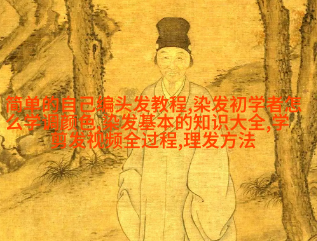 简单的自己编头发教程,染发初学者怎
么学调颜色,染发基本的知识大全,学
剪发视频全过程,理发方法